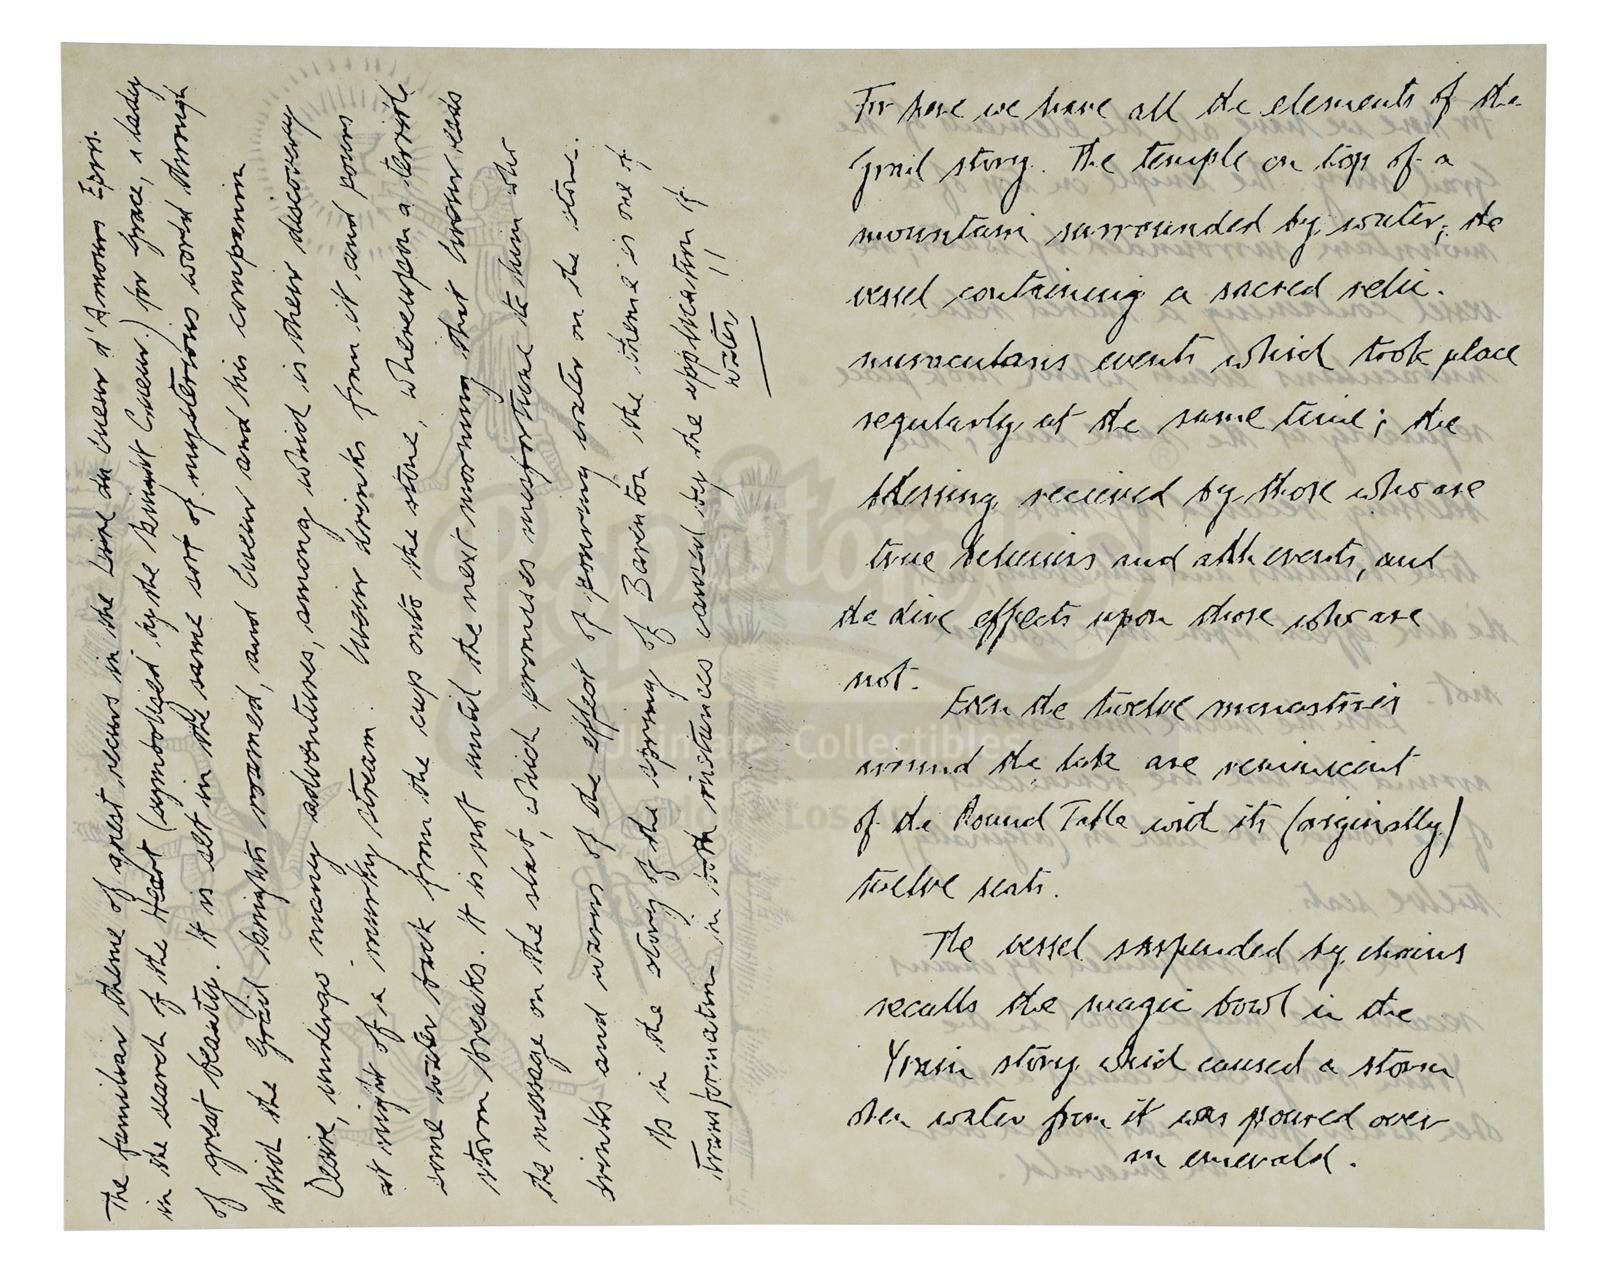 The familiar theme of quest recurs in the Livre du Cueur d'Amours Epris.
in the search of the Heart (symbolised by the knight Cueur) for Grace, a lady
of great beauty. It is set in the same sort of mysterious world through
which the Grail knights roamed, and Cueur and his companion
Desire, undergo many adventures, among which is their discovery
at night of a murky stream. Cueur drinks from it and pours
some water back from the cup onto the stone, whereupon a terrible
storm breaks. It is not until the next morning that Cueur reads
the message on the slab, which promises misfortune to him who
drinks and warns of the effect of pouring water on the stone.
As in the story of the spring of Barenton the theme is one of
transformation in both instances caused by the application of
water!!
For here we have all the elements of the
Grail story. The temple on top of a
mountain surrounded by water; the
vessel containing a sacred relic.
miraculous events which took place
regularly at the same time; the
blessing received by those who are
true believers and adherents, and
the dire effects upon those who are
not.
Even the twelve monasteries
around the lake are reminiscent
of the Round Table with its (originally)
twelve seats.
The vessel suspended by chains
recalls the magic bowl in the
Yvain story which caused a storm
when water from it was poured over
an emerald.
Propstore®
Ultimate Collectibles
Los